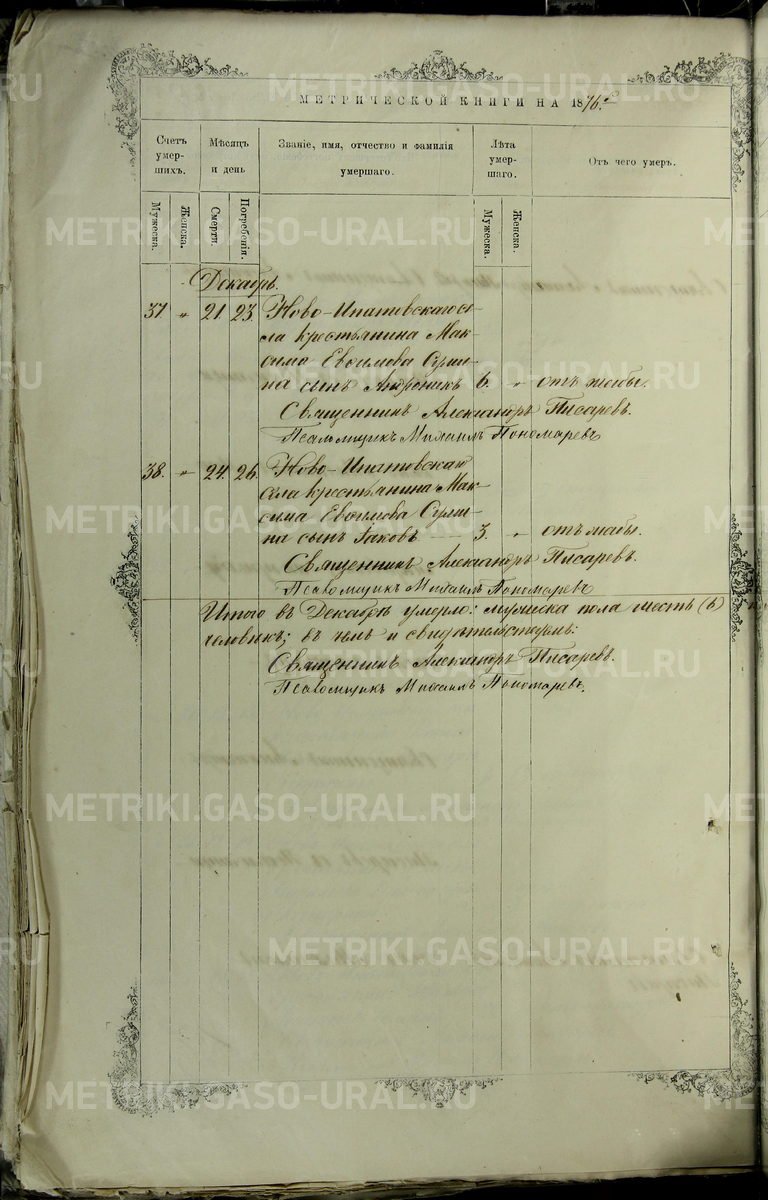 METRIKI.GASO-URAL.RU
МЕТРИЧЕСКОЙ КНИГИ НА 1876 г.
Счетъ умер-шихъ.
Мѣсяцъ и день
Званіе, имя, отчество и фамилія умершаго.
Лѣта умер-шаго.
Отъ чего умеръ.
Мужеска.
Женска.
Смерти.
Погребенія.
Мужеска.
Женска.
Декабрь.
37. „ 21. 23. Ново-Ипатовскаго се-
ла крестьянина Мак-
сима Евѳимова
на сынъ Андроникъ 6. „ отъ жабы.
Священникъ Александръ Писаревъ.
Псаломщикъ Михаилъ Пономаревъ
38. „ 24. 26. Ново-Ипатовскаго
села крестьянина Мак-
сима Евѳимова
на сынъ Іаковъ 3. „ отъ жабы.
Священникъ Александръ Писаревъ.
Псаломщикъ Михаилъ Пономаревъ
Итого въ Декабрѣ умерло: мужеска пола шесть (6)
человѣкъ; въ чемъ и свидѣтельствуемъ:
Священникъ Александръ Писаревъ.
Псаломщикъ Михаилъ Пономаревъ.